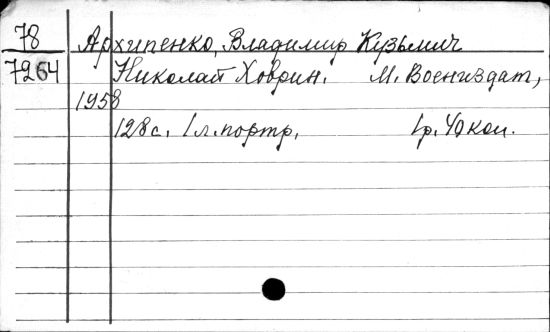 78 Архипенко, Владимир Кузьмич
7264 Николай Ховрин. М. Воениздат,
1958
128 с. 1 л. портр. 1 р. 40 коп.